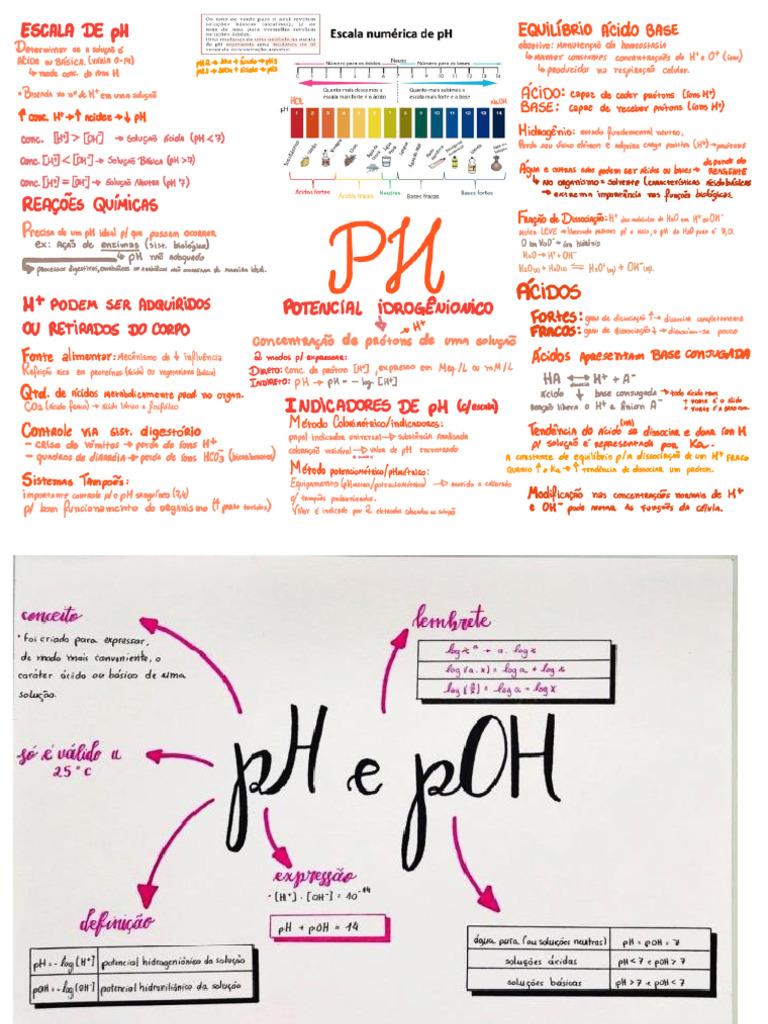 ESCALA DE pH
Determinar se a solução é
ÁCIDA ou BÁSICA. (varia 0-14)
↳ mede conc. de íons H
• Baseada no nº de H⁺ em uma solução
↑ conc. H⁺ → ↑ acidez → ↓ pH
conc. [H⁺] > [OH⁻] → solução Ácida (pH < 7)
conc. [H⁺] < [OH⁻] → Solução Básica (pH > 7)
conc. [H⁺] = [OH⁻] → Solução Neutra (pH 7)
REAÇÕES QUÍMICAS
Precisa de um pH ideal p/ que possam ocorrer
ex: Ação de enzimas (sist. biológico)
↳ pH não adequado
↳ processos digestivos,
H⁺ PODEM SER ADQUIRIDOS
OU RETIRADOS DO CORPO
Fonte alimentar: Mecanismo de ↓ influência
Refeição rica em proteínas (ácida) ou vegetariana (básica)
Qtd. de ácidos metabolicamente prod. no organ.
CO₂ (ácido fraco) → ácido lático e fosfórico
Controle via sist. digestório
- crise de vômitos → perda de íons H⁺
- quadros de diarréia → perda de íons HCO₃⁻ (bicarbonatos)
Sistemas Tampões:
importante controle p/ o pH sanguíneo (7,4)
p/ bom funcionamento do organismo (↑ parte tecidos)
Os tons de verde para o azul revelam
soluções básicas (alcalinas), já os
tons de amarelo para vermelho revelam
soluções ácidas.
Escala numérica de pH
Neutro
Número para os ácidos
Número para as bases
Quanto mais descemos a
escala mais forte é o ácido
Quanto mais subimos a
escala mais forte é a base
HCl
NaOH
pH
1 2 3 4 5 6 7 8 9 10 11 12 13 14
Ácidos fortes
Ácidos fracos
Neutros
Bases fracas
Bases fortes
PH
POTENCIAL iDROGÊNIONICO
↳ H⁺
concentração de prótons de uma solução
2 modos p/ expressar:
DIRETO: conc de próton [H⁺], expresso em Meq./L ou mM/L
INDIRETO: pH → pH = - log [H⁺]
INDICADORES DE pH (c/escala)
Método Colorimétrico/indicadores:
papel indicador universal → substância analisada
coloração variável → valor de pH encontrado
Método potenciométrico/pHmétrico:
Equipamento (pHmetro/potenciométrico) → aferido e calibrado
c/ tampões padronizados.
Valor é indicado por 2 eletrodos
EQUILÍBRIO ÁCIDO BASE
objetivo: MANUTENÇÃO da homeostasia
↳ manter constantes concentrações de H⁺ e O⁺ (íons)
↳ produzidos na respiração celular.
ÁCIDO: capaz de ceder prótons (íons H⁺)
BASE: capaz de receber prótons (íons H⁺)
Hidrogênio: estado fundamental neutro.
Perde seu único elétron e adquire carga positiva (H⁺) → prótons
Água e outras subs podem ser ácidos ou bases → depende do REAGENTE
↳ no organismo → solvente (características ácido/básicas
→ extrema importância nas funções biológicas.
Fração de Dissociação:
H₂O → H⁺ + OH⁻
H₂O(l) + H₂O(l) ⇌ H₃O⁺(aq) + OH⁻(aq).
ÁCIDOS
FORTES: grau de dissociação ↑ → dissocia completamente
FRACOS: grau de dissociação ↓ → dissociam-se pouco
Ácidos apresentam BASE CONJUGADA
HA ⇌ H⁺ + A⁻
dissocia
Ácido ↳ base conjugada
reação libera o H⁺ e Ânion A⁻
Tendência do Ácido se dissocia e dona íon H
p/ solução é representada por Ka.
A constante de equilíbrio p/ a dissociação de um H⁺ FRACO
quanto ↑ o Ka → ↑ tendência de dissociar um próton.
Modificação nas concentrações normais de H⁺
e OH⁻ pode mudar as funções da célula.
conceito
• Foi criado para expressar,
de modo mais conveniente, o
caráter ácido ou básico de uma
solução.
lembrete
log xᵃ = a . log x
log (a . x) = log a + log x
log (a/x) = log a - log x
só é válido a
25°C
pH e pOH
expressão
• [H⁺] . [OH⁻] = 10⁻¹⁴
pH + pOH = 14
definição
pH = - log [H⁺] potencial hidrogeniônico da solução
pOH = - log [OH⁻] potencial hidroxiliônico da solução
água pura (ou soluções neutras) pH = pOH = 7
soluções ácidas pH < 7 e pOH > 7
soluções básicas pH > 7 e pOH < 7